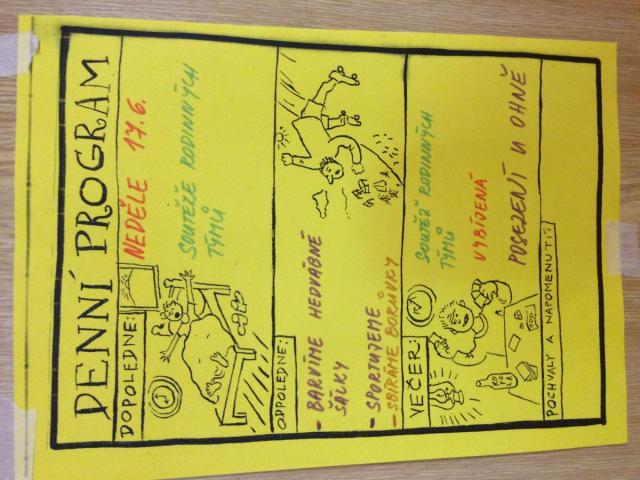 DENNÍ PROGRAM
DOPOLEDNE:
NEDĚLE 17.6.
SOUTĚŽE RODINNÝCH
TÝMŮ
ODPOLEDNE:
- BARVÍME HEDVÁBNÉ
ŠÁLKY
- SPORTUJEME
- SBÍRÁME BORŮVKY
VEČER:
SOUTĚŽ RODINNÝCH
TÝMŮ
VYBÍJENÁ
POSEZENÍ U OHNĚ
POCHVALY A NAPOMENUTÍ: